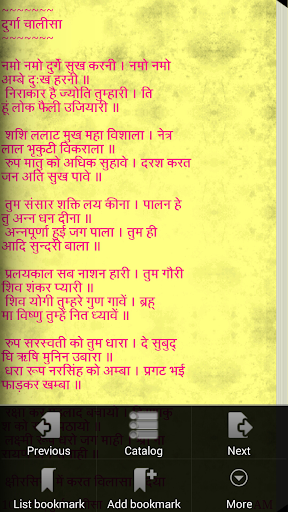 ~~~~~~~
दुर्गा चालीसा
~~~~~~~
नमो नमो दुर्गे सुख करनी । नमो नमो
अम्बे दुःख हरनी ॥
निराकार है ज्योति तुम्हारी । ति
हूं लोक फैली उजियारी ॥
शशि ललाट मुख महा विशाला । नेत्र
लाल भृकुटी विकराला ॥
रुप मातु को अधिक सुहावे । दरश करत
जन अति सुख पावे ॥
तुम संसार शक्ति लय कीना । पालन हे
तु अन्न धन दीना ॥
अन्नपूर्णा हुई जग पाला । तुम ही
आदि सुन्दरी बाला ॥
प्रलयकाल सब नाशन हारी । तुम गौरी
शिव शंकर प्यारी ॥
शिव योगी तुम्हरे गुण गावें । ब्रह्
मा विष्णु तुम्हें नित ध्यावें ॥
रुप सरस्वती को तुम धारा । दे सुबुद्
घि ऋषि मुनिन उबारा ॥
धरा रूप नरसिंह को अम्बा । प्रगट भई
फाड़कर खम्बा ॥
Previous Catalog Next
List bookmark Add bookmark More